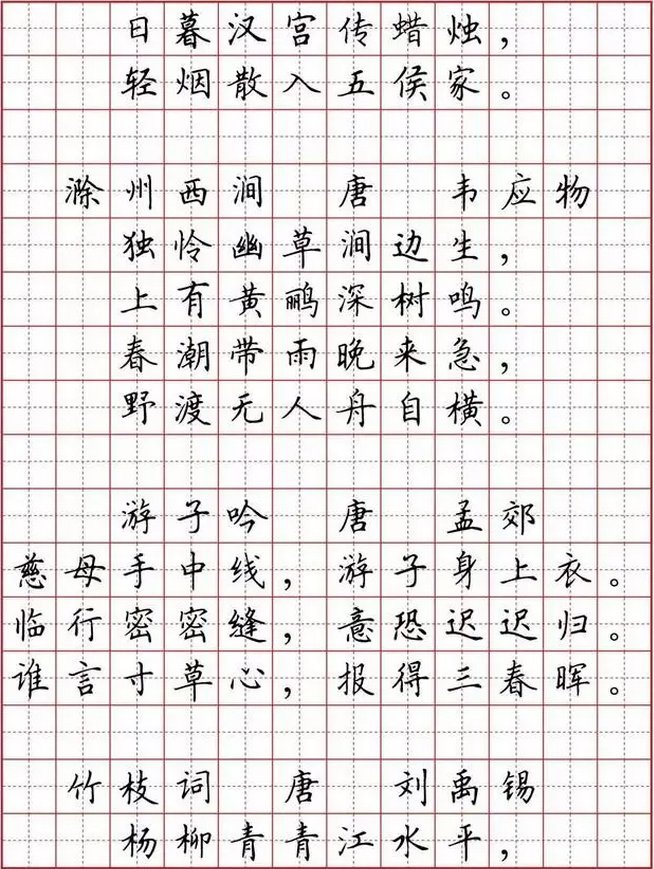 日暮汉宫传蜡烛，
轻烟散入五侯家。
滁州西涧 唐 韦应物
独怜幽草涧边生，
上有黄鹂深树鸣。
春潮带雨晚来急，
野渡无人舟自横。
游子吟 唐 孟郊
慈母手中线，游子身上衣。
临行密密缝，意恐迟迟归。
谁言寸草心，报得三春晖。
竹枝词 唐 刘禹锡
杨柳青青江水平，